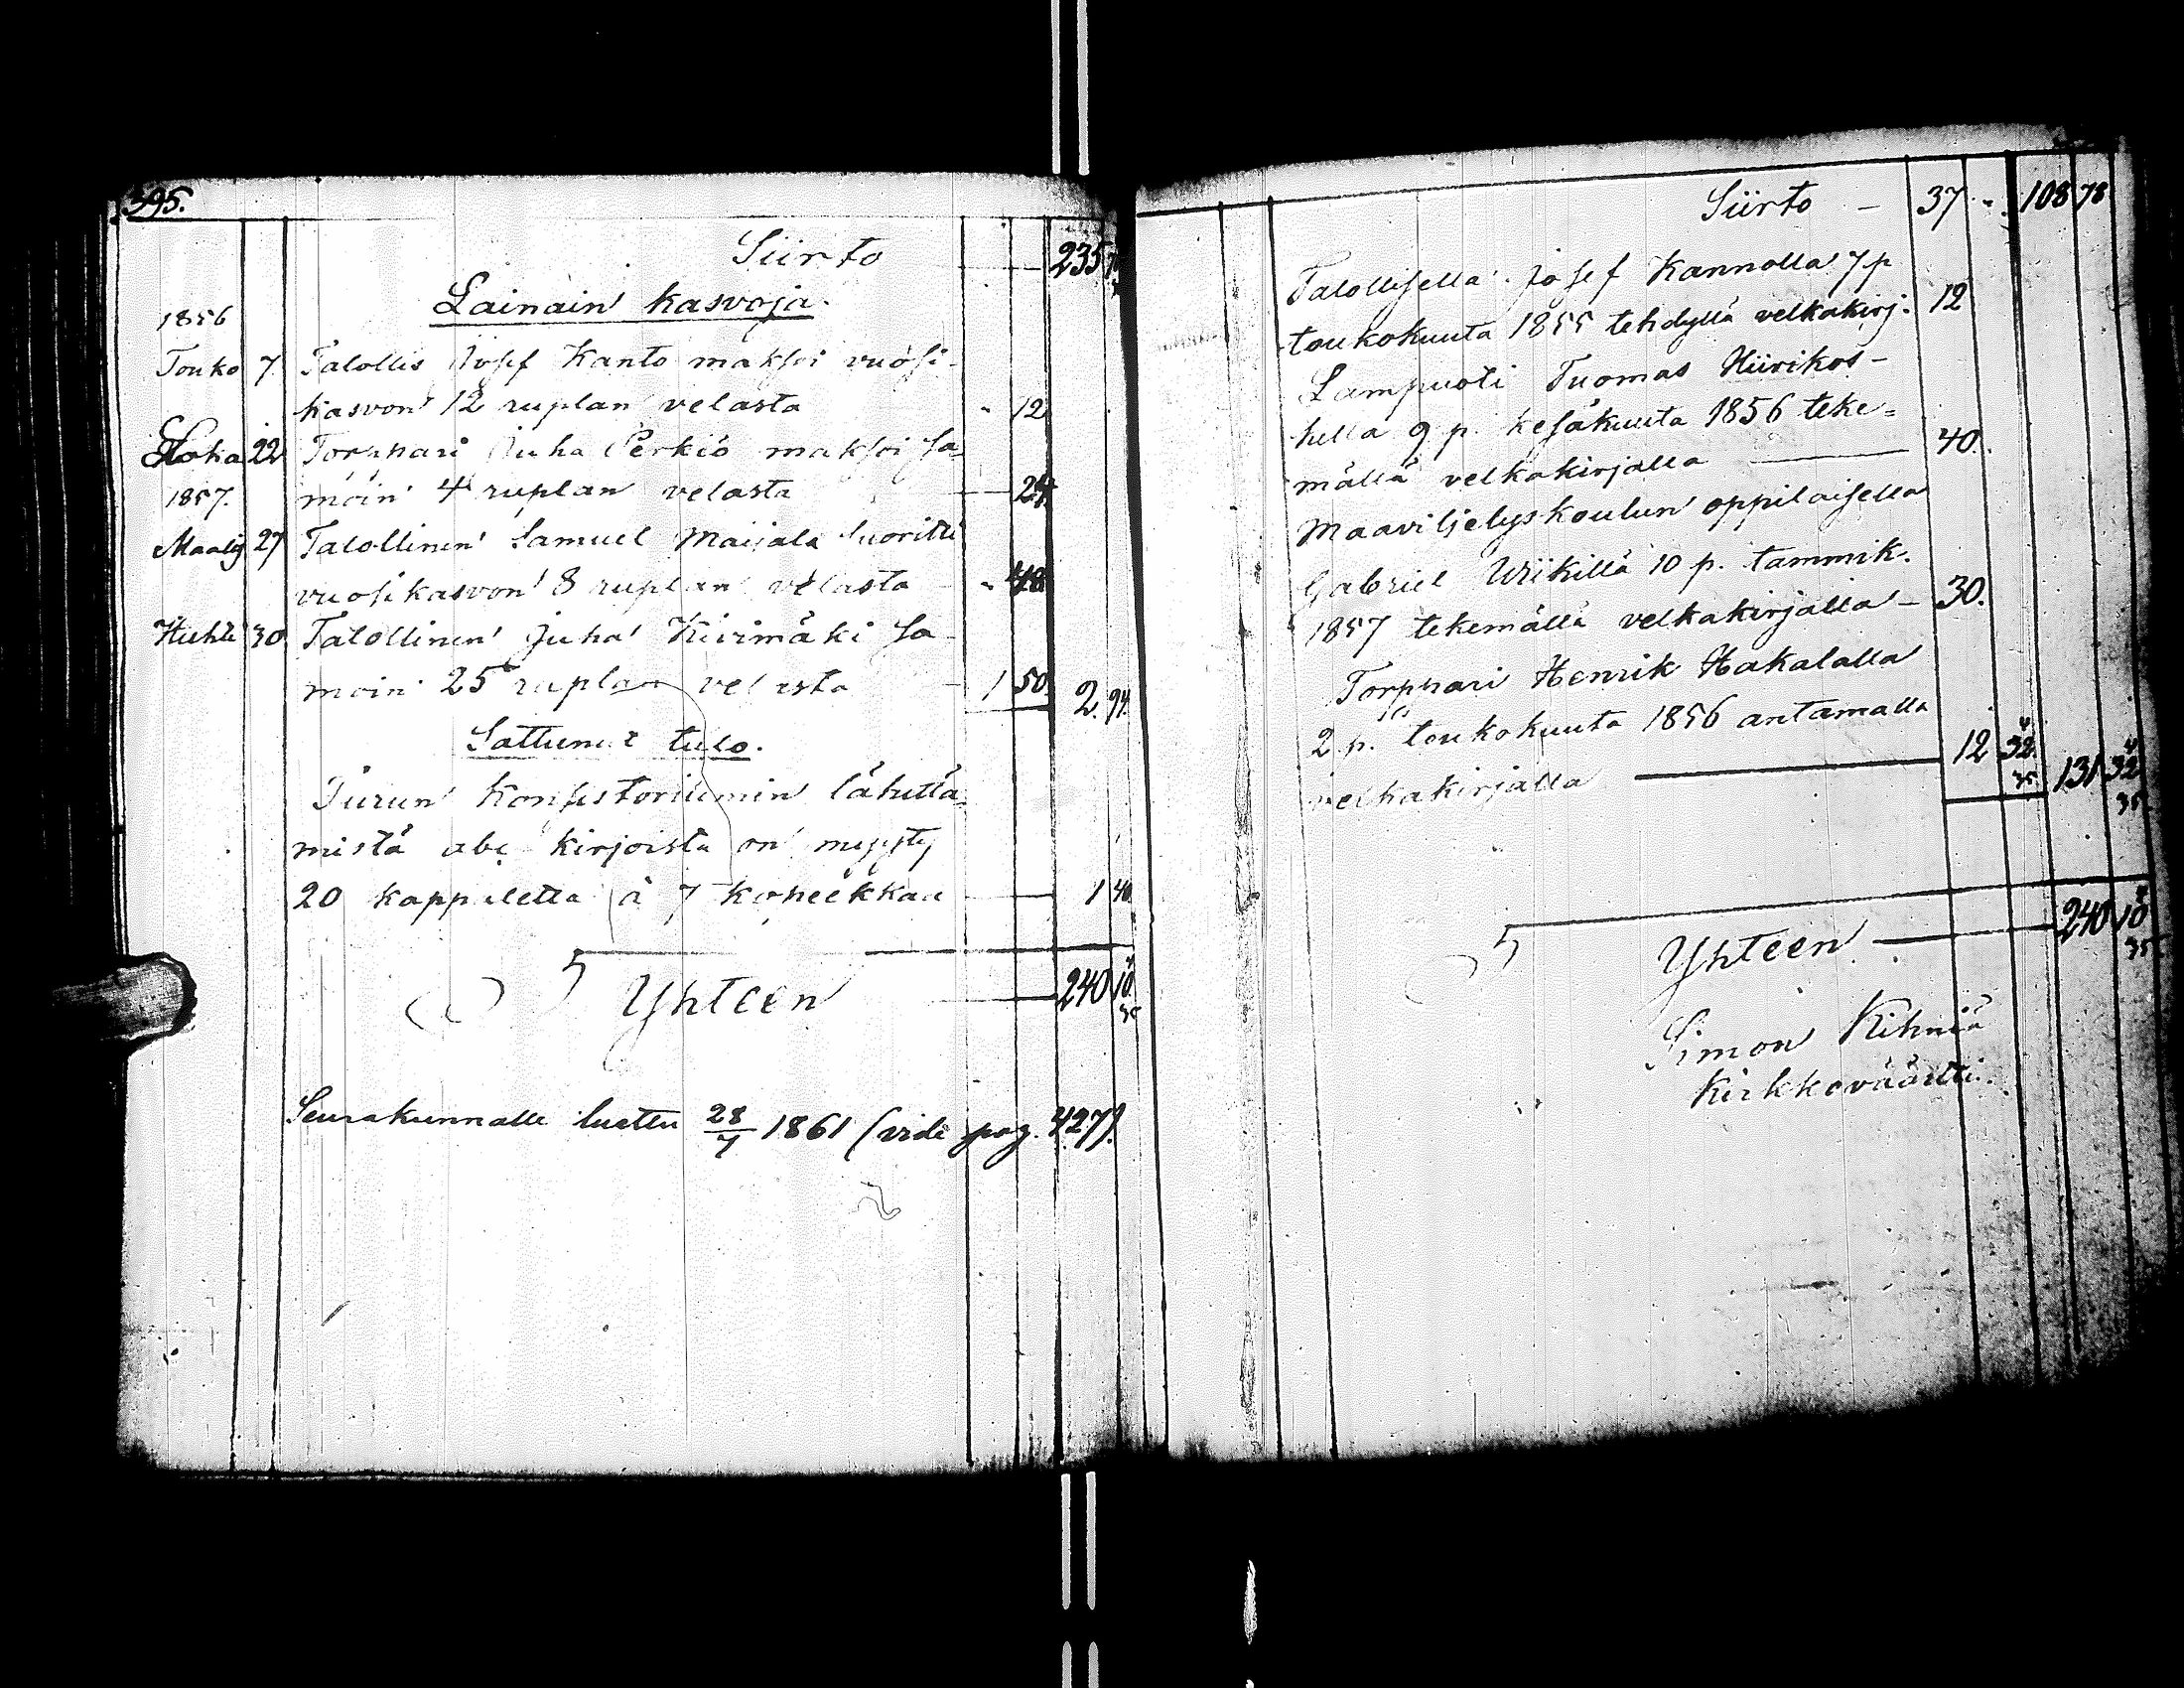 395.
Siirto — 235
1856 Lainain kasvoja.
Touko 7. Talollis Josef Kanto maksoi vuosi-
kasvon 12 ruplan velasta " 12
Loka 22 Torppari Juha Perkiö maksoi sa-
1857. moin 4 ruplan velasta — 24.
Maalis 27 Talollinen Samuel Maijala suoritti
vuosikasvon 8 ruplan velasta " 48
Huhti 30. Talollinen Juha Kivimäki sa-
moin 25 ruplan velasta — 1 50. 2. 94.
Sattunut tulo.
Turun Konsistoriumin lähettä-
mistä abc kirjoista on myyty
20 kappaletta à 7 kopeekkaa — 1 40
Yhteen — 240 10 4/35
Seurakunnalle luettu 28/7 1861 (vide pag. 427).
Siirto — 37 " 108 78
Talollisella Josef Kannolla 7 p
toukokuuta 1855 tehdyllä velkakirj. 12
Lampuoti Tuomas Hiirikos-
kella 9 p. kesäkuuta 1856 teke-
mällä velkakirjalla — 40.
Maaviljelyskoulun oppilaisella
Gabriel Wiikillä 10 p. tammik.
1857 tekemällä velkakirjalla — 30.
Torppari Henrik Hakalalla
2 p. toukokuuta 1856 antamalla
velkakirjalla — 12 32 4/35 131 32 4/35
Yhteen — 240 10 4/35
Simon Kihniä
Kirkkoväärtti.